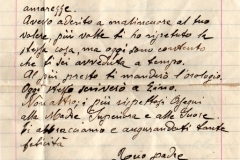 amaresse.
Avevo aderito a malincuore al tuo
volere, più volte ti ho ripetuto la
stessa cosa, ma oggi sono contento
che ti sei avveduta a tempo.
Al più presto ti manderò l'orologio.
Oggi stesso scriverò a Zino.
Non altro; i più rispettosi ossequi
alla Madre Superiora e alle Suore.
Ti abbraccio e augurandoti tante
felicità
Tuo padre